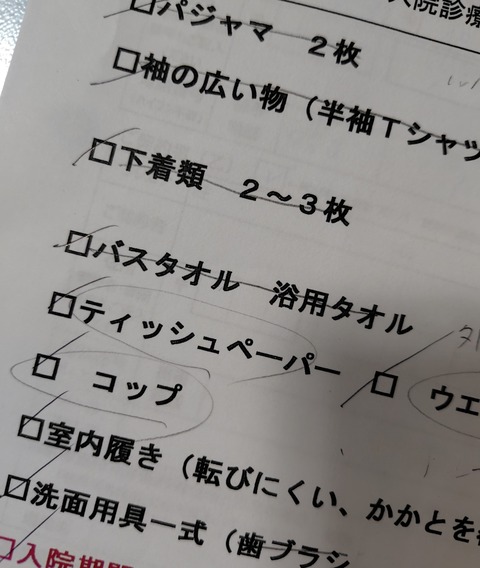 入院診療
□パジャマ　２枚
□袖の広い物（半袖Ｔシャツ
□下着類　２～３枚
□バスタオル　浴用タオル
□ティッシュペーパー　□ ウエ
□　コップ
□室内履き（転びにくい、かかとを
□洗面用具一式（歯ブラシ
□入院期間